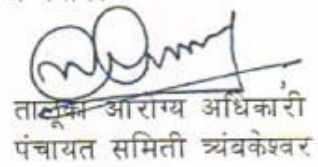 तालूका आरोग्य अधिकारी
पंचायत समिती त्र्यंबकेश्वर